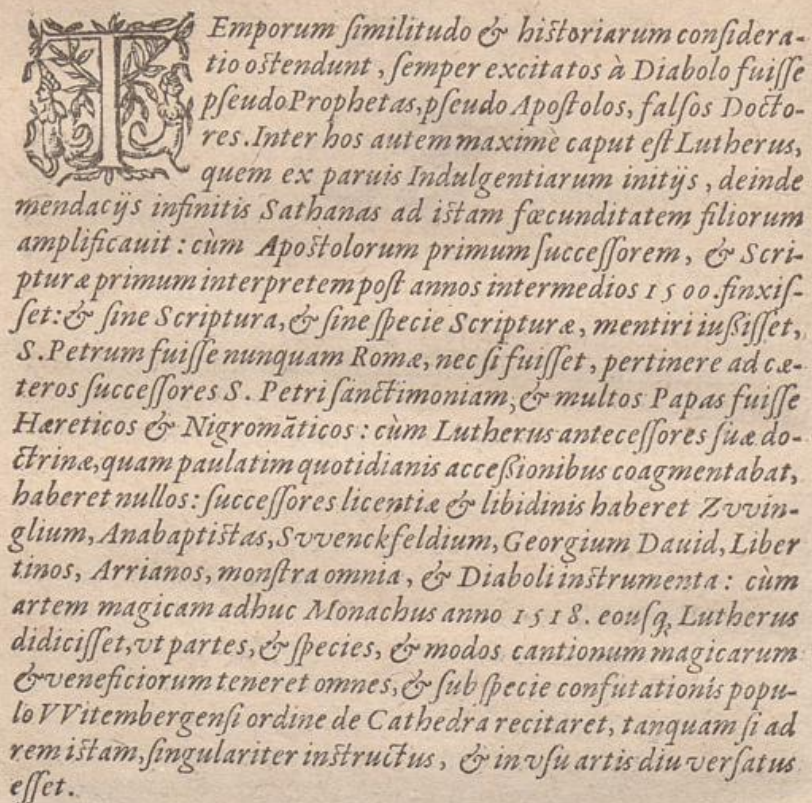 TEmporum ſimilitudo & hiſtoriarum conſidera-
tio oſtendunt, ſemper excitatos à Diabolo fuiſſe
pſeudoProphetas, pſeudo Apoſtolos, falſos Docto-
res. Inter hos autem maximè caput eſt Lutherus,
quem ex paruis Indulgentiarum initijs, deinde
mendacijs infinitis Sathanas ad iſtam fœcunditatem filiorum
amplificauit: cùm Apoſtolorum primum ſucceſſorem, & Scri-
pturæ primum interpretem poſt annos intermedios 1500. finxiſ-
ſet: & ſine Scriptura, & ſine ſpecie Scripturæ, mentiri iußiſſet,
S. Petrum fuiſſe nunquam Romæ, nec ſi fuiſſet, pertinere ad cæ-
teros ſucceſſores S. Petri ſanctimoniam, & multos Papas fuiſſe
Hæreticos & Nigromāticos: cùm Lutherus anteceſſores ſuæ do-
ctrinæ, quam paulatim quotidianis acceßionibus coagmentabat,
haberet nullos: ſucceſſores licentiæ & libidinis haberet Zvvin-
glium, Anabaptiſtas, Svvenckfeldium, Georgium Dauid, Liber
tinos, Arrianos, monſtra omnia, & Diaboli inſtrumenta: cùm
artem magicam adhuc Monachus anno 1518. eouſq; Lutherus
didiciſſet, vt partes, & ſpecies, & modos cantionum magicarum
& veneficiorum teneret omnes, & ſub ſpecie confutationis popu-
lo VVitembergenſi ordine de Cathedra recitaret, tanquam ſi ad
rem iſtam, ſingulariter inſtructus, & in vſu artis diu verſatus
eſſet.